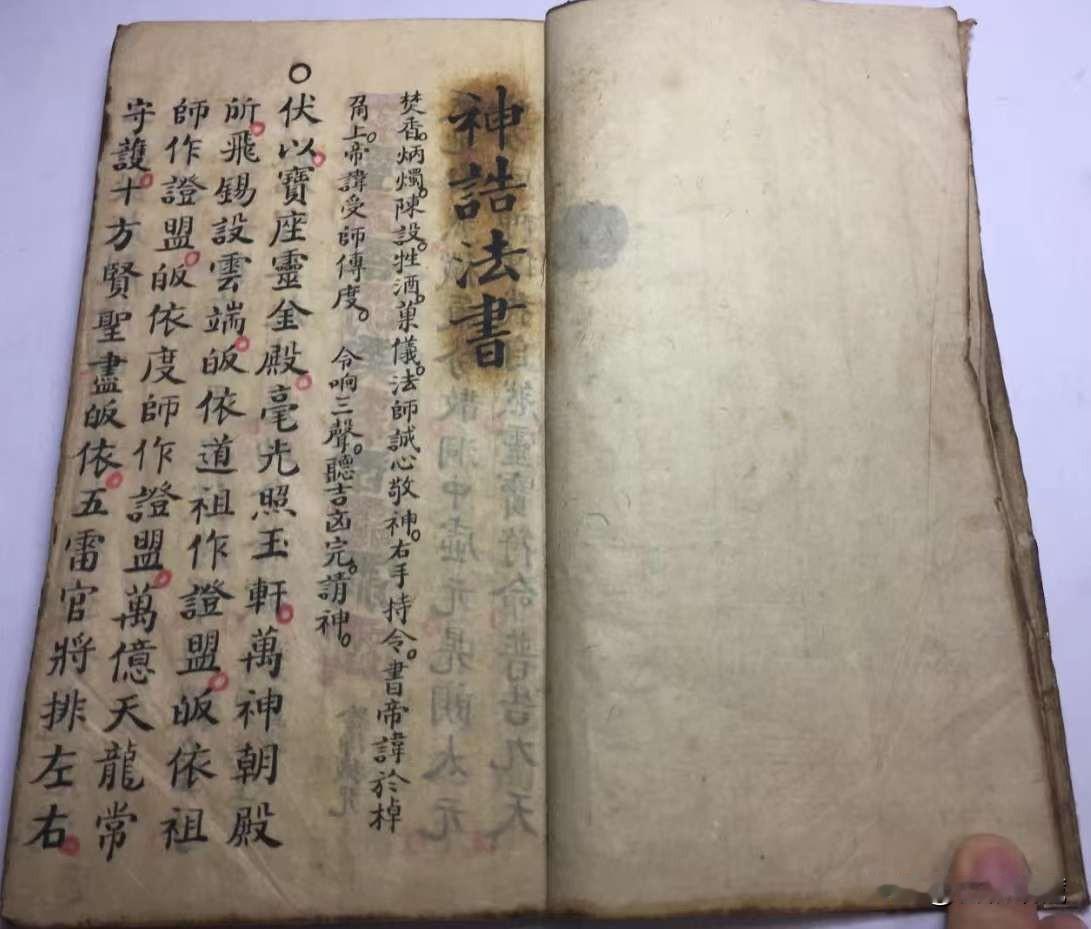 神誥法書
焚香。炳燭。陳設。牲酒。菓儀。法師誠心敬神。右手持令。書帝諱於棹
角上。帝諱受師傳度。 令响三聲。聽吉凶完。請神。
○伏以。寶座靈金殿。毫光照玉軒。萬神朝殿
所。飛錫設雲端。皈依道祖作證盟。皈依祖
師作證盟。皈依度師作證盟。萬億天龍常
守護。十方賢聖盡皈依。五雷官將排左右。